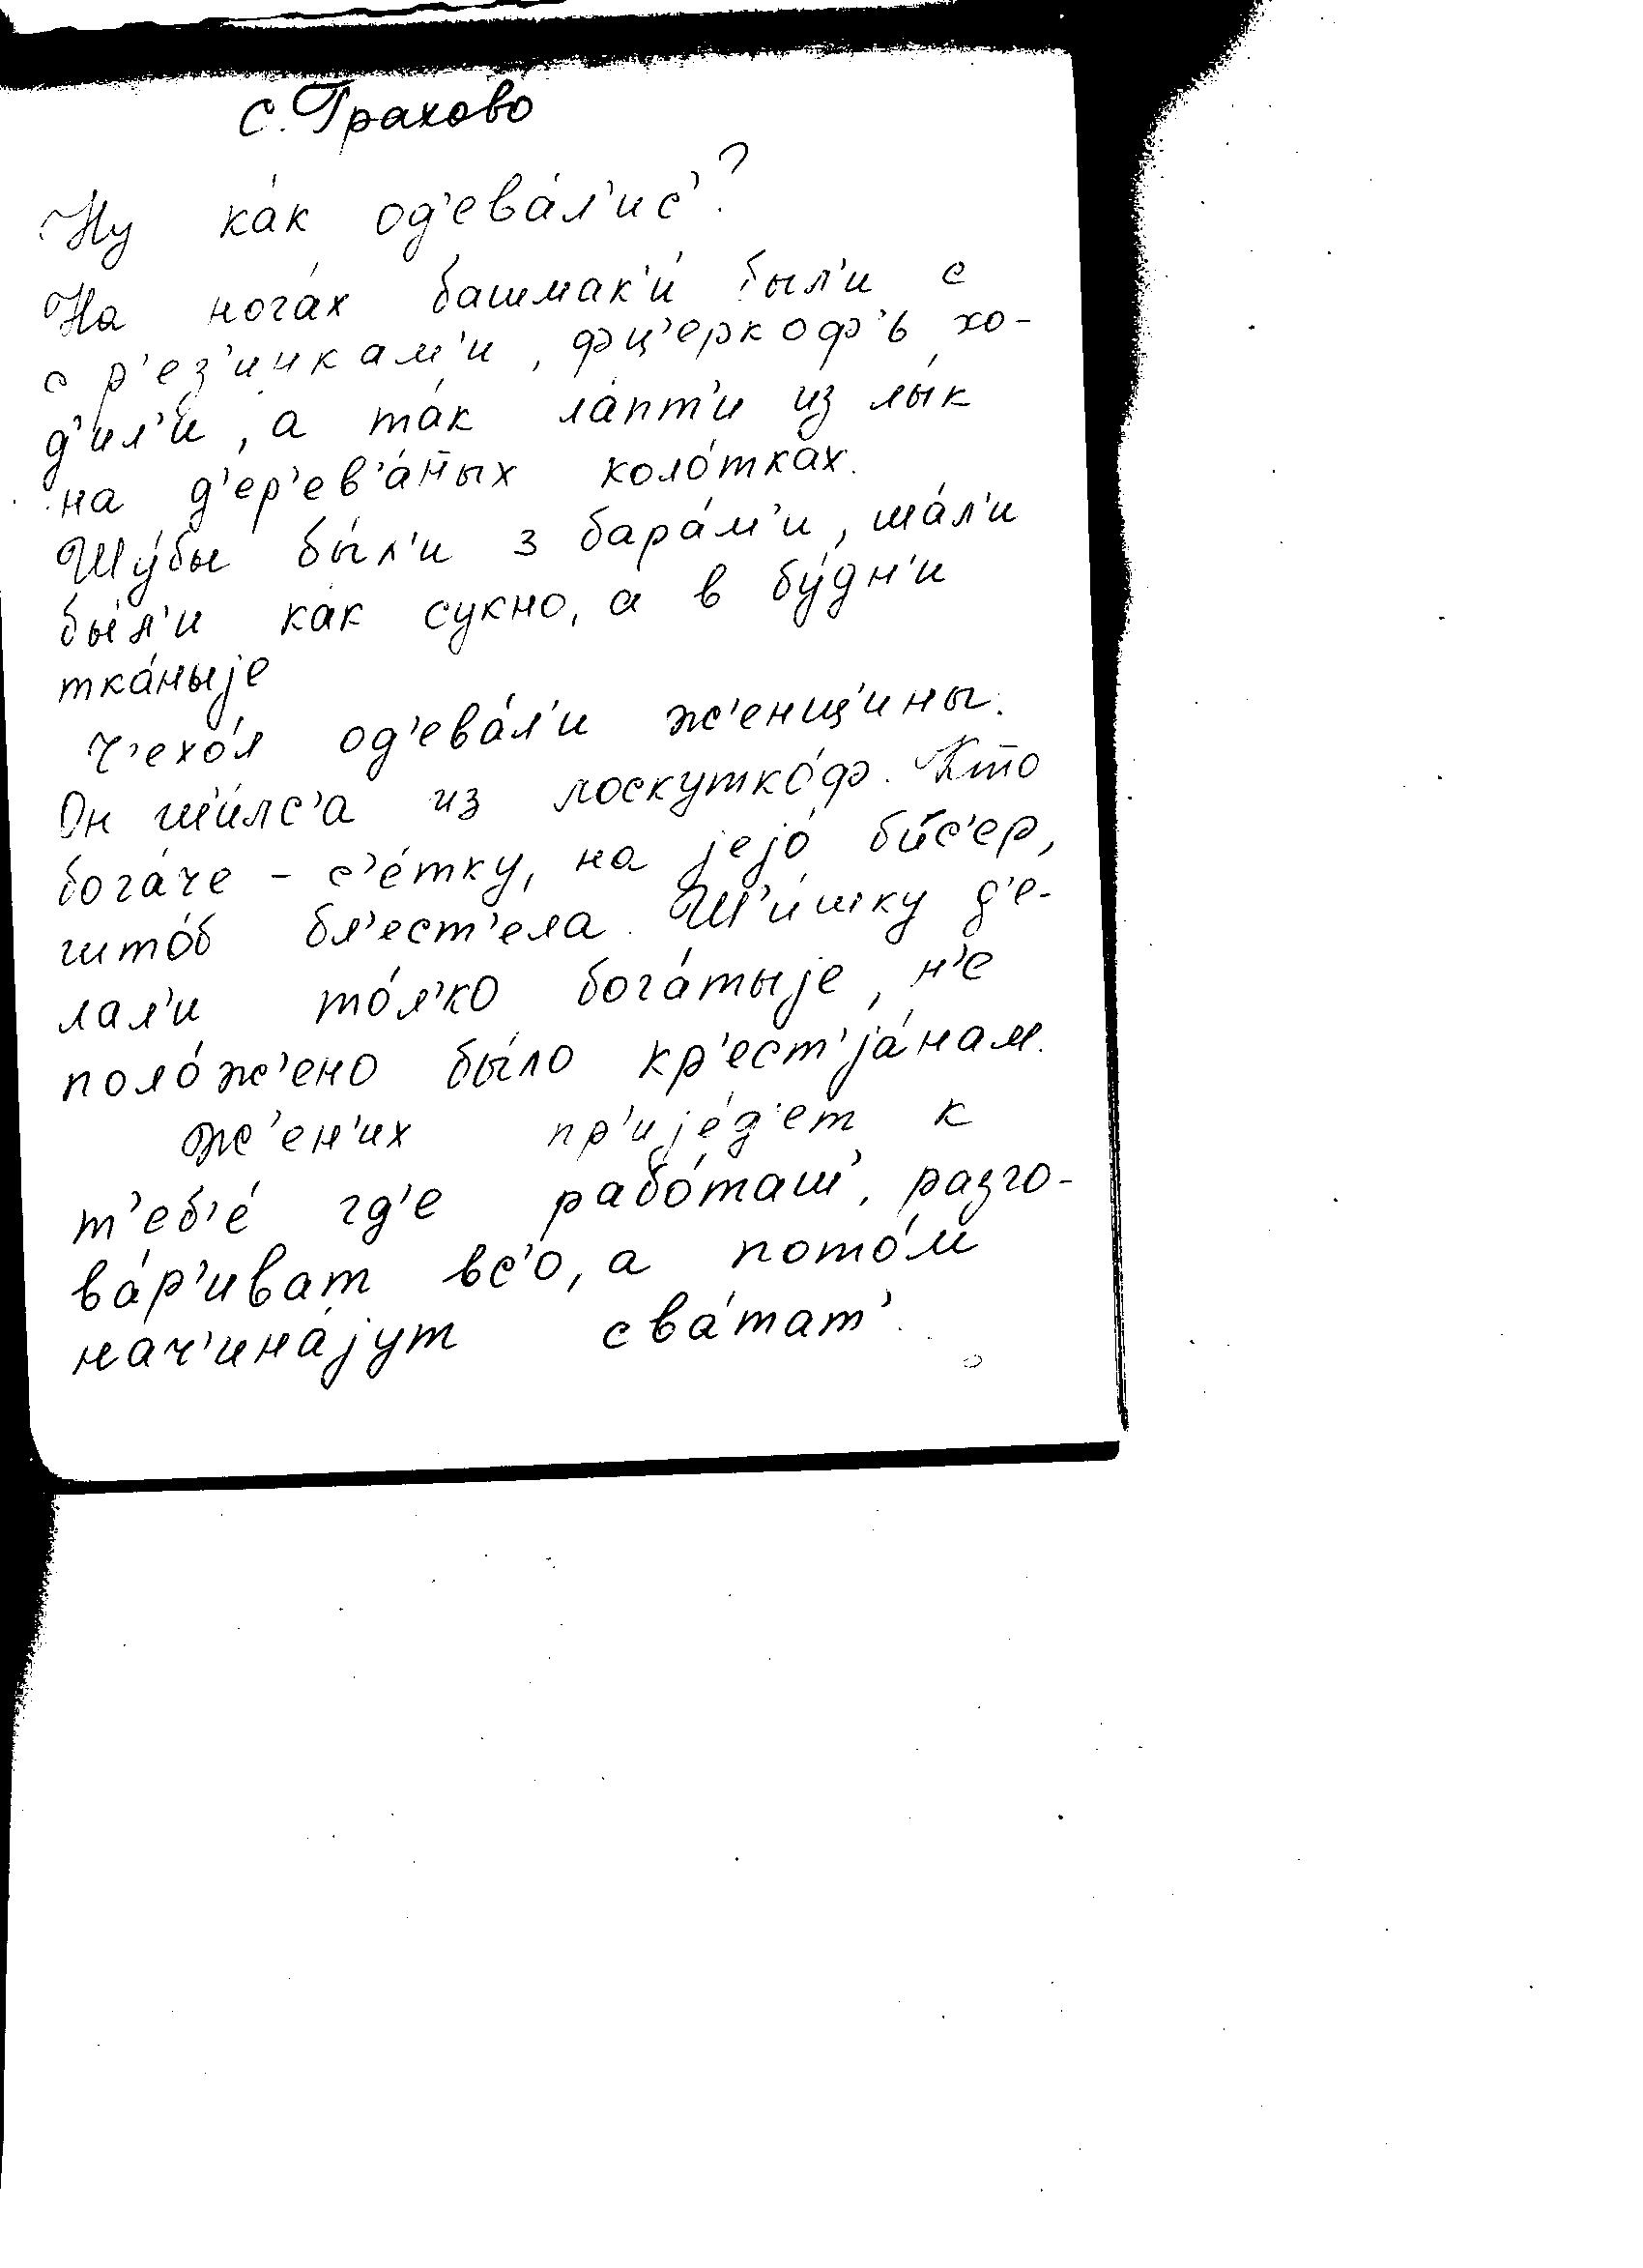 с. Грахово
Ну ка́к од'ева́л'ис'?
На нога́х башмак'и́ был'и с
с р'ез'инкам'и, фц'еркоф'ь хо-
д'ил'и, а та́к ла́пт'и из лы́к
на д'ер'ев'а́ных коло́тках.
Шу́бы бы́л'и з бара́м'и, ша́л'и
бы́л'и как сукно, а в бу́дн'и
тка́ныjе
Ч'ехо́л од'ева́л'и ж'енщ'ины.
Он ши́лс'а из лоскутко́ф. Кто
бога́че - с'е́тку, на jejо́ би́с'ер,
што́б бл'ест'ела. Ш'и́шку д'е-
лал'и то́л'ко бога́тыjе, н'е
поло́ж'ено бы́ло кр'ест'jа́нам.
Ж'ен'их пр'иjе́д'ет к
т'еб'е́ гд'е рабо́таш', разго-
ва́р'иват вс'о, а пото́м
нач'ина́jут сва́тат'.